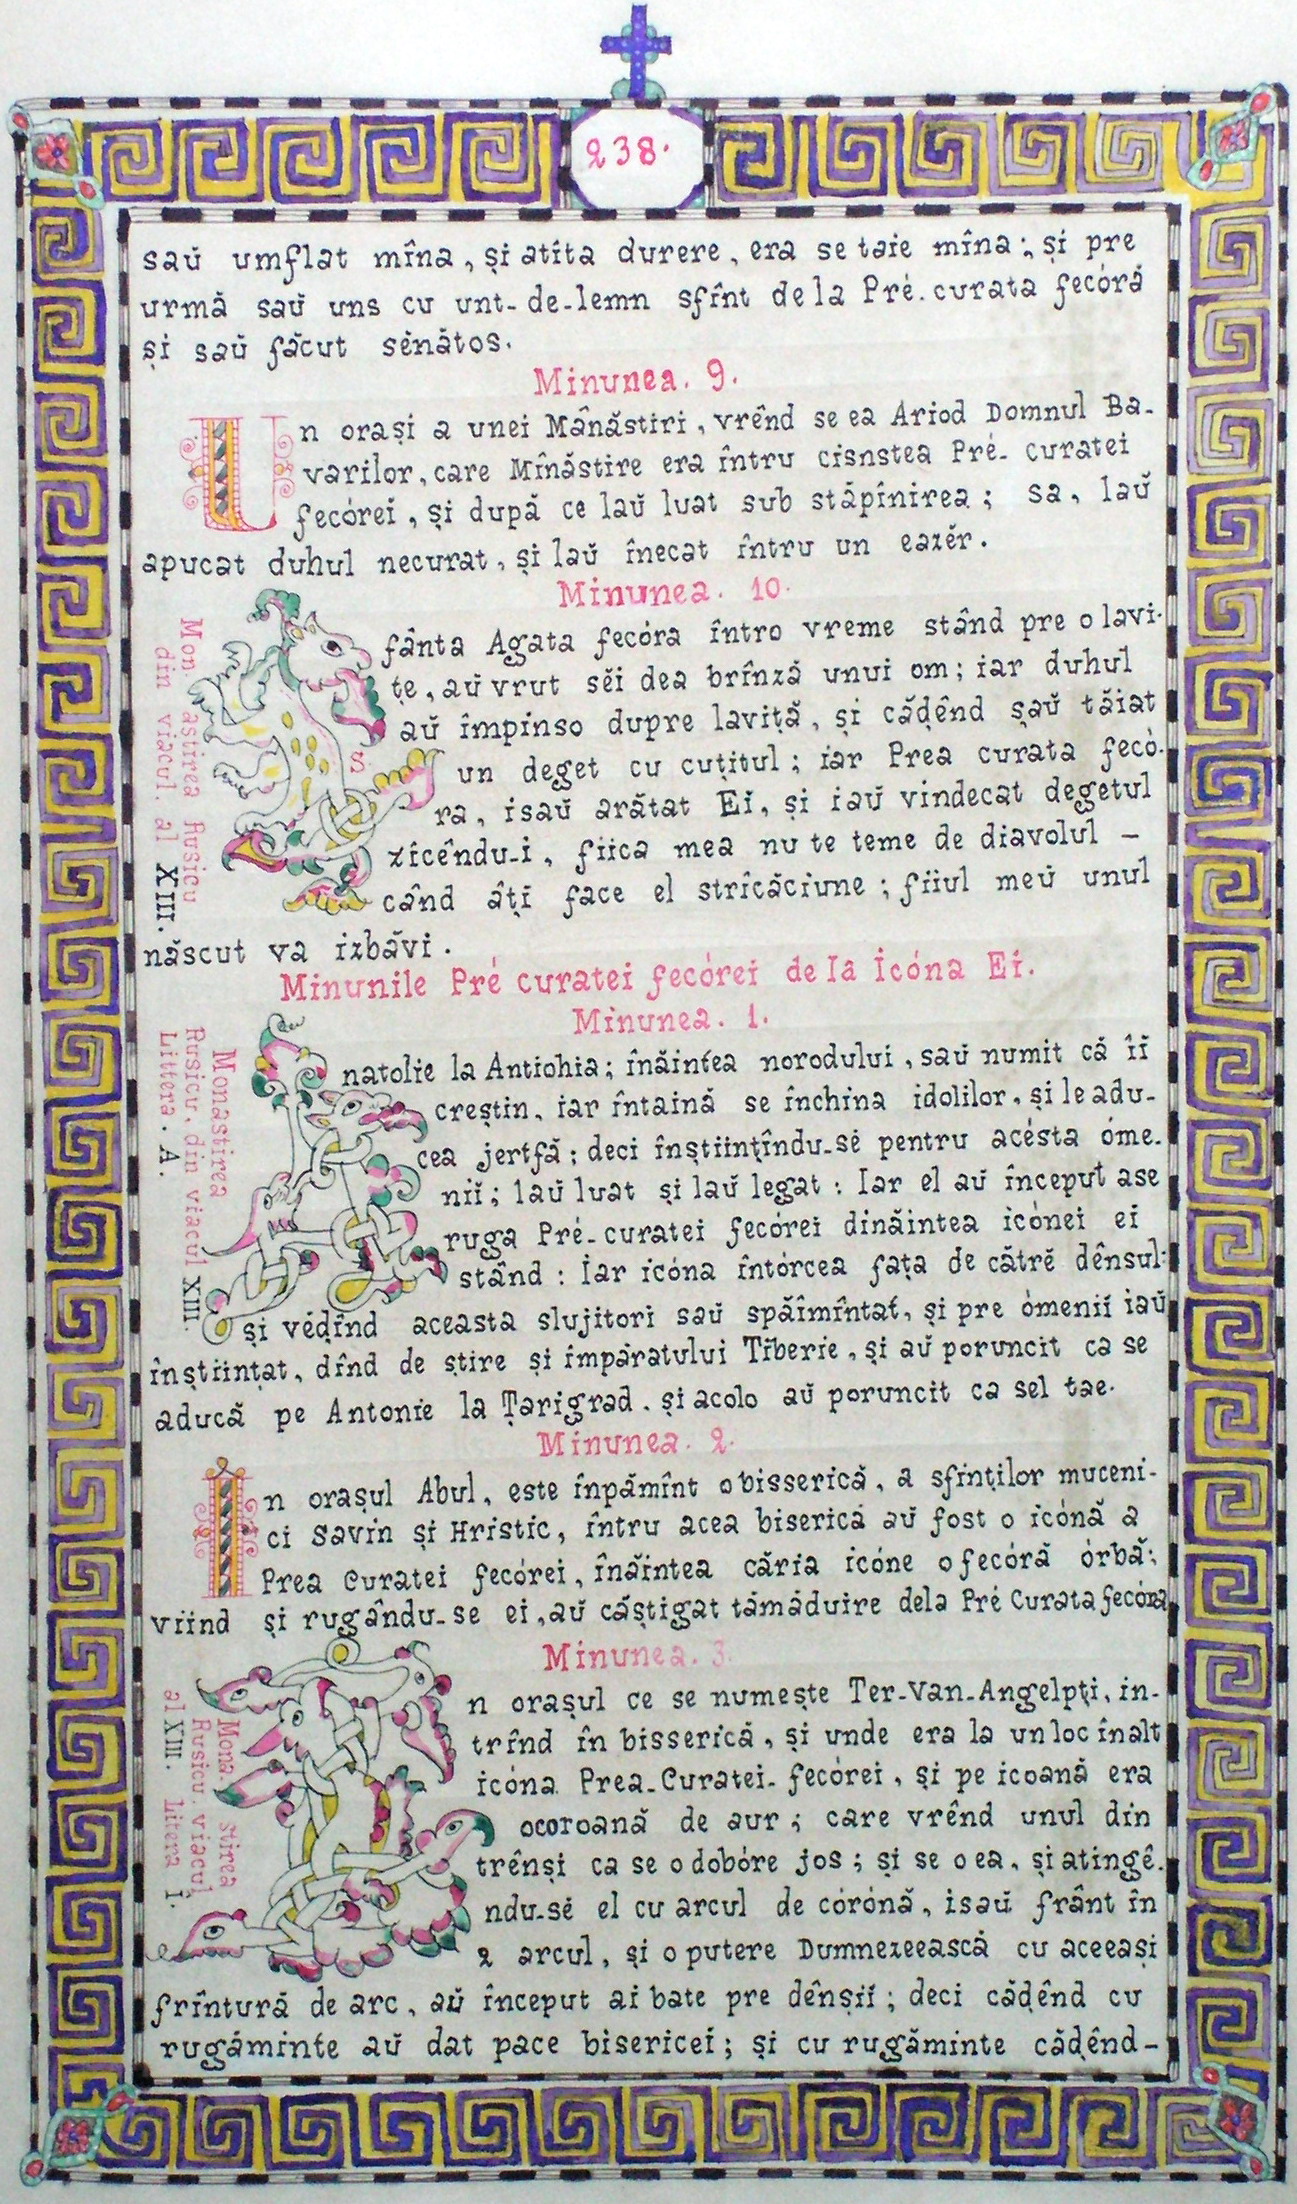 238.
saŭ umflat mîna, și atîta durere, era se taie mîna; și pre
urmă saŭ uns cu unt-de-lemn sfînt de la Pré.curata fecóră
și saŭ făcut sénătos.
Minunea. 9.
Un orași a unei Mânăstiri, vrênd se ea Ariod Domnul Ba-
varilor, care Mînăstire era întru cisnstea Pré-curatei
fecóreĭ, și după ce laŭ luat sub stăpînirea; sa, laŭ
apucat duhul necurat, și laŭ înecat întru un eazĕr.
Minunea. 10.
Sfânta Agata fecóra întro vreme stând pre o lavi-
țe, aŭ vrut sĕi dea brînză unui om; iar duhul
aŭ împinso dupre laviță, și căḍênd șaŭ tăiat
un deget cu cuțitul; iar Prea curata fecó-
ra, isaŭ arătat Ei, și iaŭ vindecat degetul
zicêndu-i, fiica mea nu te teme de diavolul –
când âți face el stricăciune; fiiul meŭ unul
născut va izbăvi.
Mon. astirea Rusicu
din viacul. al XIII.
Minunile Pré curatei fecórei de la Icóna Ei.
Minunea. 1.
Anatolie la Antiohia; înăintea norodului, saŭ numit că îi
creștin, iar întaină se închina idolilor, și le adu-
cea jertfă; deci înștiințîndu-sé pentru acésta óme-
niĭ; laŭ luat și laŭ legat: Iar el aŭ început ase
ruga Pré-curatei fecórei dinăintea icónei ei
stând: Iar icóna întórcea fața de cătrĕ dênsul:
și vêḍînd aceasta slujitori saŭ spăimîntat, și pre ómenii iaŭ
înștiințat, dînd de știre și împăratului Tiberie, și aŭ poruncit ca se
aducă pe Antonie la Țarigrad. și acolo aŭ poruncit ca sel tae.
Monastirea
Rusicu. din viacul XIII.
Littera. A.
Minunea. 2.
In orașul Abul, este înpămînt o bisserică, a sfinților muceni-
ci Savin și Hristic, întru acea biserică aŭ fost o icónă a
Prea Curatei fecórei, înăintea căria icóne o fecóră órbă;
viind și rugându-se ei, aŭ câștigat tămăduire dela Pré Curata fecóra
Minunea. 3.
In orașul ce se numește Ter-Van-Angelpți, in-
trînd în bisserică, și unde era la un loc înalt
icóna Prea-Curatei-fecórei, și pe icoană era
ocoroană de aur; care vrênd unul din
trênși ca se o dobóre jos; și se o ea, și atingê-
ndu-sé el cu arcul de córónă, isaŭ frânt în
2 arcul, și o putere Dumnezeească cu aceeași
frîntură de arc, aŭ început ai bate pre dênșii; deci căḍênd cu
rugăminte aŭ dat pace bisericeĭ; și cu rugăminte căḍênd-
Mona. stirea
Rusicu. viacul
al XIII. litera Î.